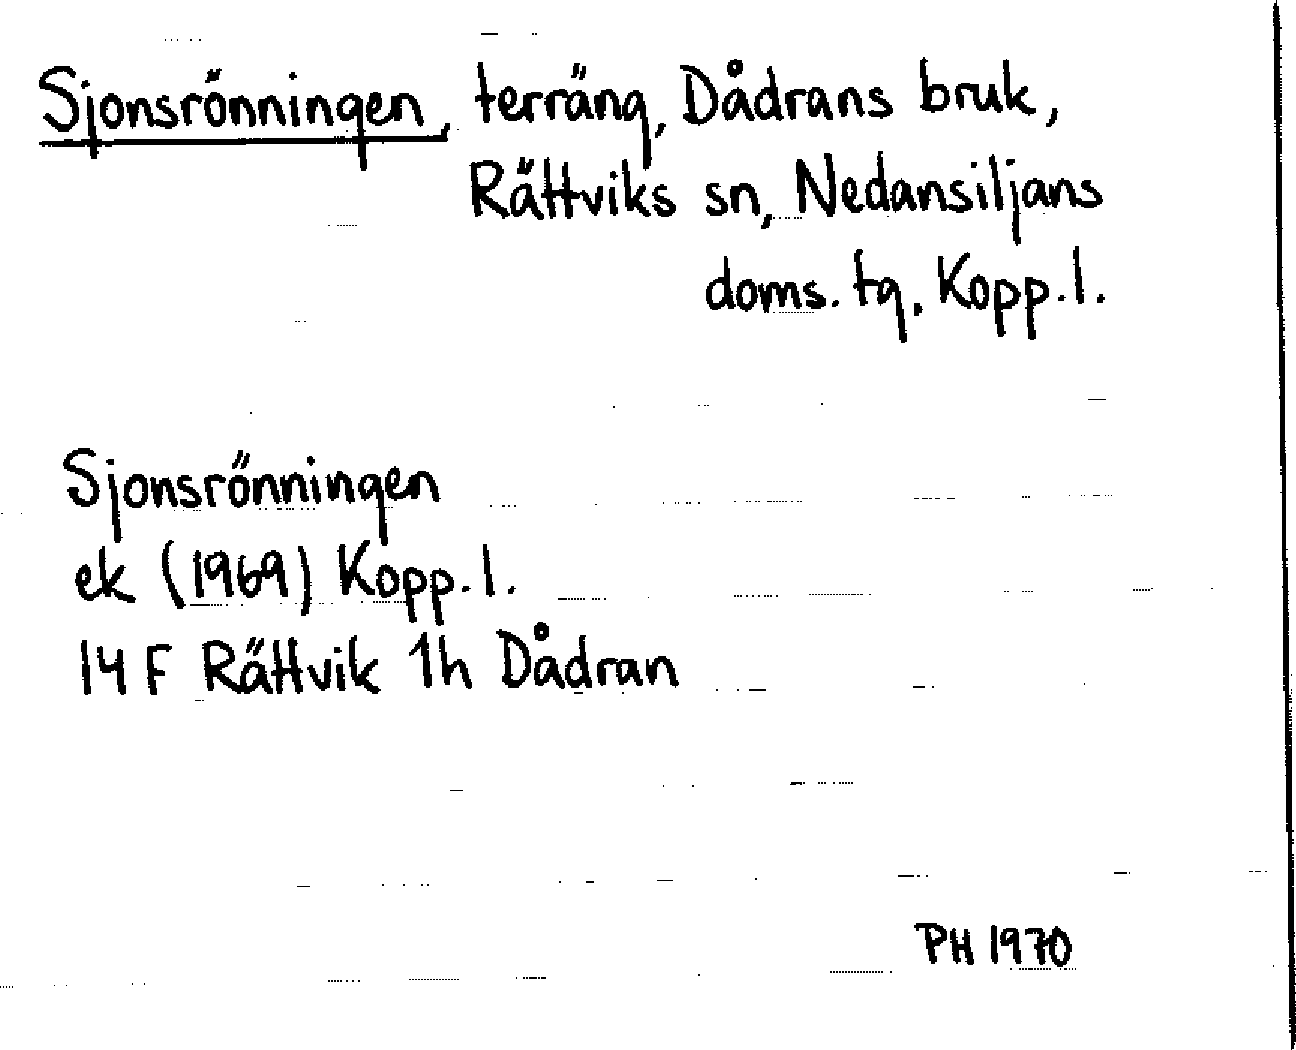 Sjonsrönningen, terräng, Dådrans bruk,
Rättviks sn, Nedansiljans
doms. tg, Kopp. l.
Sjonsrönningen
ek (1969) Kopp. l.
14 F Rättvik 1h Dådran
PH 1970